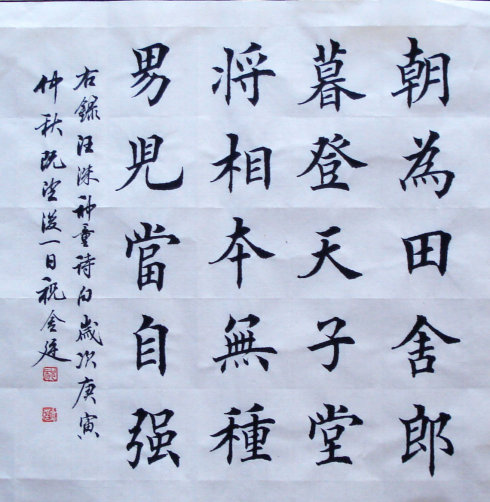 朝為田舍郎
暮登天子堂
將相本無種
男兒當自强
右錄汪洙神童詩句歲次庚寅
仲秋既望後一日祝金廷